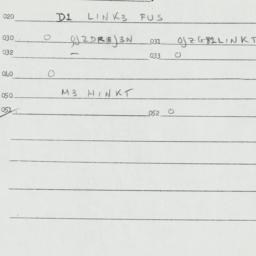 020 D1 LINK3 FUS
030 0 0JZDREJ3N 031 0JZG81LINKT
032 – 033 0
040 0
050 M3 HINKT
051 052 0